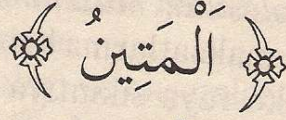 اَلْمَتِينُ